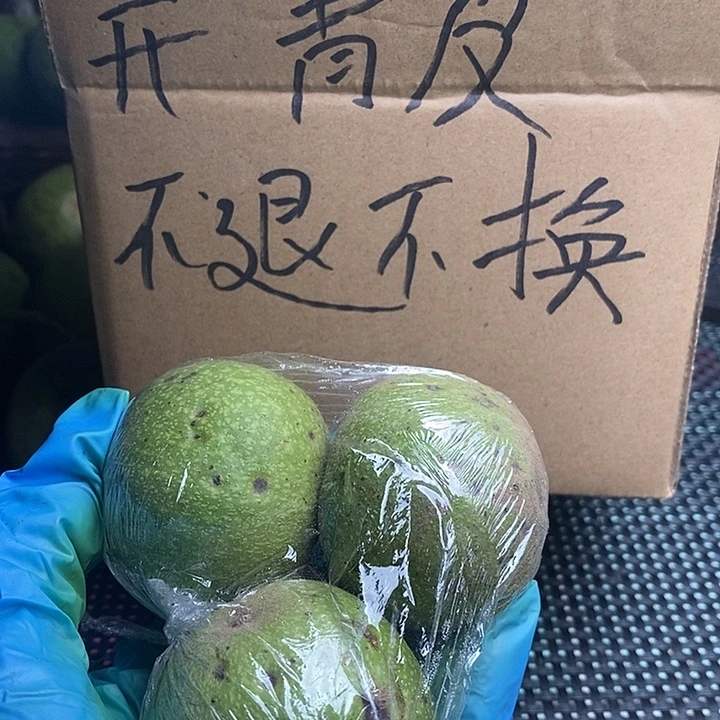 开青皮
不退不换